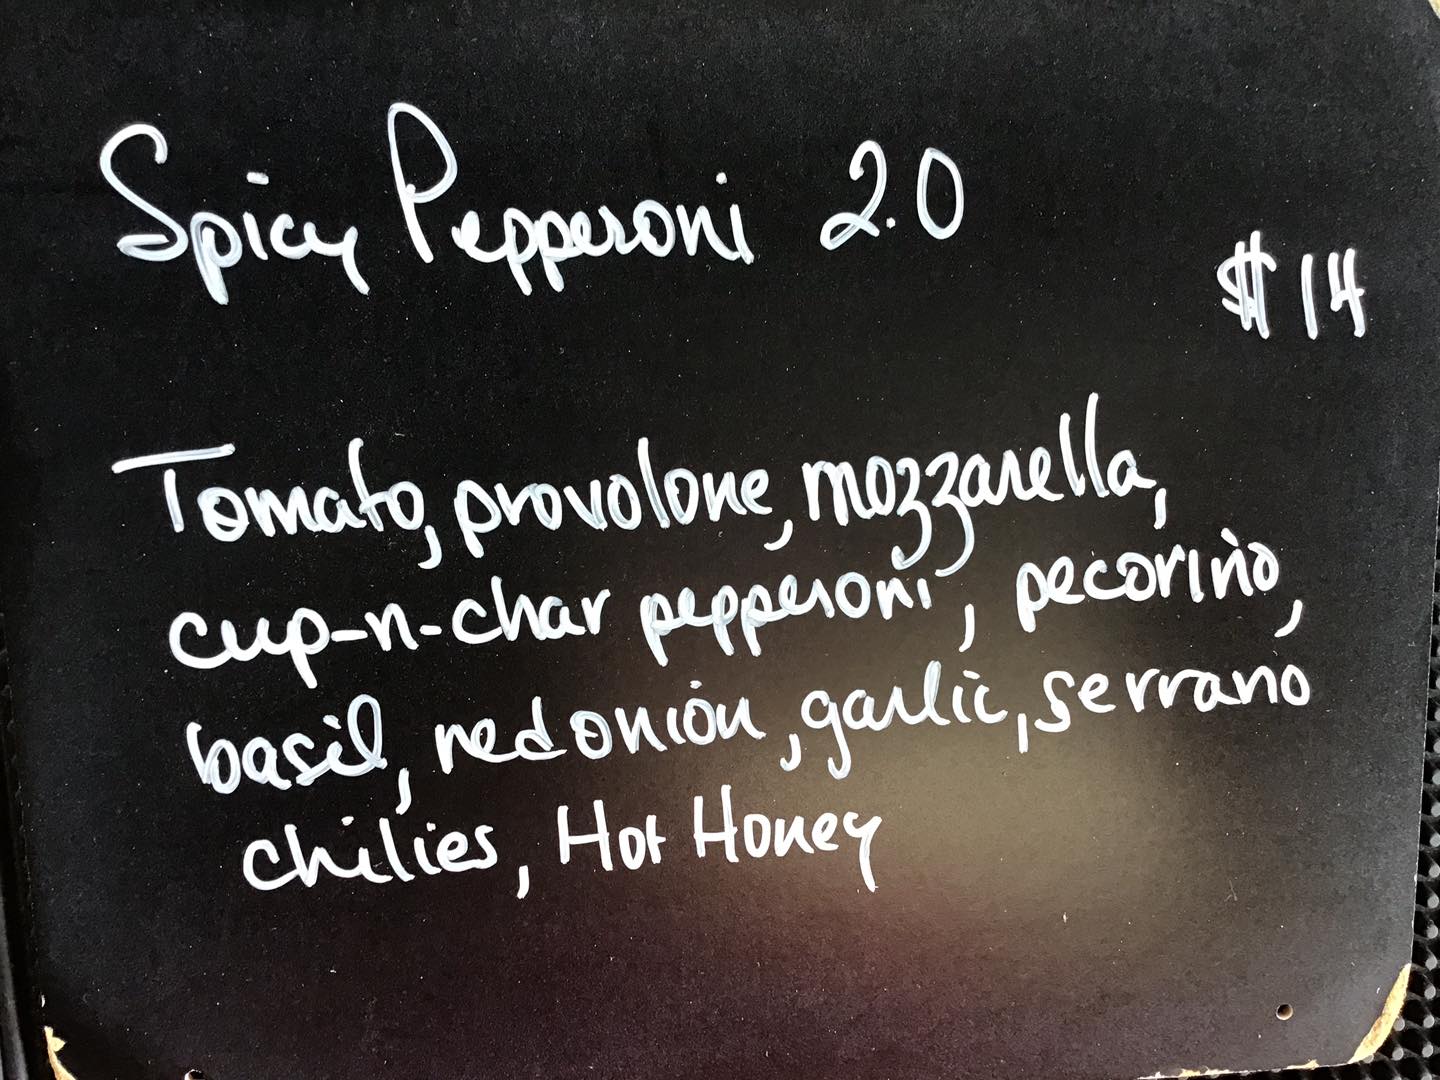 Spicy Pepperoni 2.0
$14
Tomato, provolone, mozzarella,
cup-n-char pepperoni, pecorino,
basil, red onion, garlic, serrano
chilies, Hot Honey